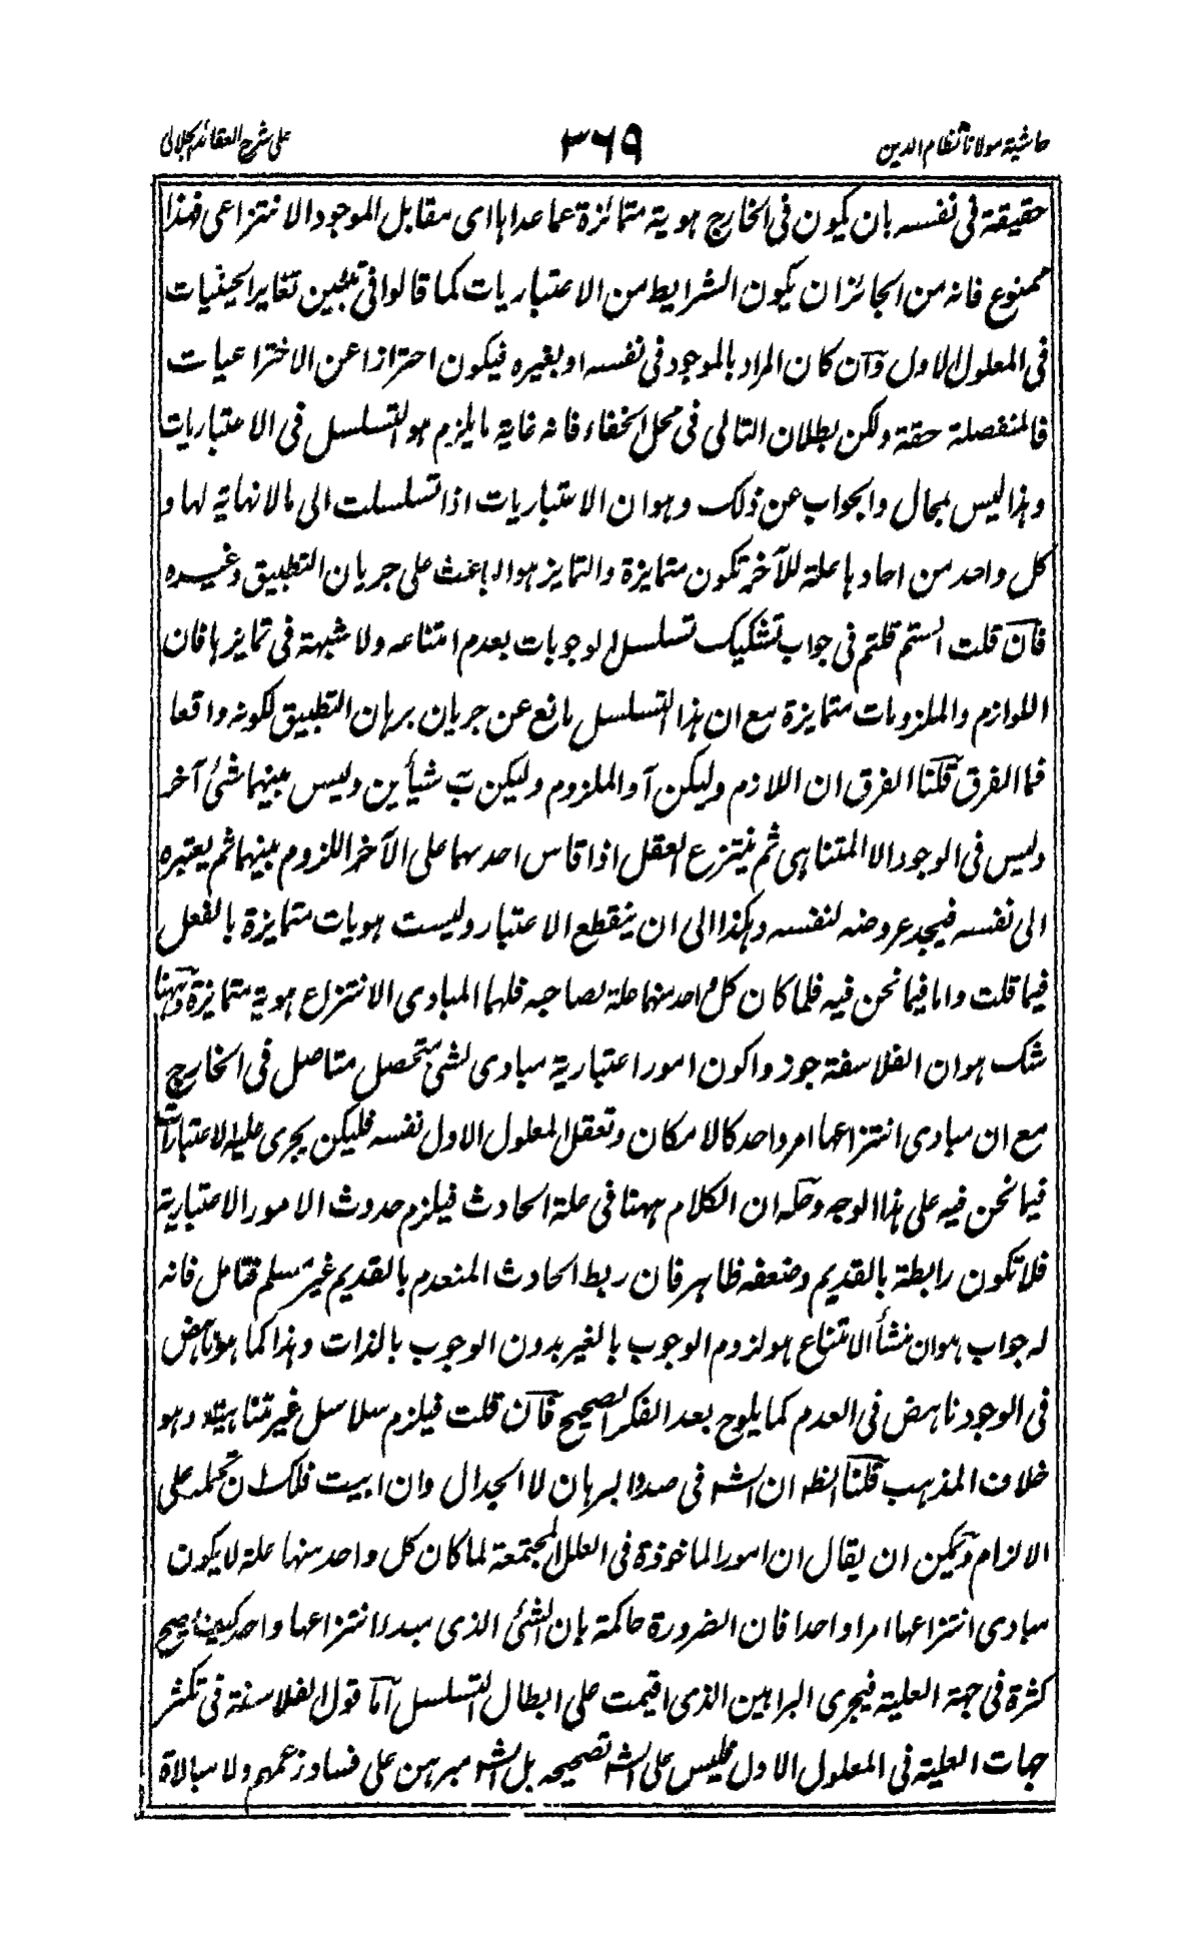 حاشية مولانا نظام الدين
٣٦٩
على شرح العقائد الجلالى
حقيقة فى نفسه بان يكون فى الخارج هوية متمائزة عما عداها اى مقابل الموجود الانتزاعى فهذا
ممنوع فانه من الجائز ان يكون الشرايط من الاعتباريات كما قالوا فى تبيين تغاير الحيثيات
فى المعلول الاول وان كان المراد بالموجود فى نفسه او بغيره فيكون احترازا عن الاختراعيات
فالمنفصلة حقة ولكن بطلان التالى فى محل الخفاء فانه غاية ما يلزم هو التسلسل فى الاعتباريات
وهذا ليس بمحال والجواب عن ذلك وهو ان الاعتباريات اذا تسلسلت الى مالا نهاية لها و
كل واحد من احادها علة للآخر تكون متمايزة والتمايز هو الباعث على جريان التطبيق وغيره
فان قلت الستم قلتم فى جواب تشكيك تسلسل الوجوبات بعدم امتناعه ولا شبهة فى تمايزها فان
اللوازم والملزومات متمايزة مع ان هذا التسلسل مانع عن جريان برهان التطبيق لكونه واقعا
فما الفرق قلنا الفرق ان اللازم وليكن آ والملزوم وليكن ب شيأين وليس بينهما شئ آخر
وليس فى الوجود الا المتناهى ثم ينتزع العقل اذا قاس احدهما على الآخر اللزوم بينهما ثم يعتبره
الى نفسه فيجد عروضه لنفسه وهكذا الى ان ينقطع الاعتبار وليست هويات متمايزة بالفعل
فيما قلت واما فيما نحن فيه فلما كان كل واحد منها علة لصاحبه فلها المبادى الانتزاع هوية متمايزة وههنا
شك هو ان الفلاسفة جوزوا كون امور اعتبارية مبادى لشئ متحصل متاصل فى الخارج
مع ان مبادى انتزاعها امر واحد كالامكان وتعقل المعلول الاول نفسه فليكن يجرى علية الاعتباريات
فيما نحن فيه على هذا الوجه وحله ان الكلام ههنا فى علة الحادث فيلزم حدوث الامور الاعتبارية
فلا تكون رابطة بالقديم وضعفه ظاهر فان ربط الحادث المنعدم بالقديم غير مسلم فتامل فانه
له جواب هو ان منشأ الامتناع هو لزوم الوجوب بالغير بدون الوجوب بالذات وهذا كما هو ناهض
فى الوجود ناهض فى العدم كما يلوح بعد الفكر الصحيح فان قلت فيلزم سلاسل غير متناهية وهو
خلاف المذهب قلنا الظ ان الش فى صدد البرهان لا الجدال وان ابيت فلك ان تحمله على
الالزام ويمكن ان يقال ان امور الماخوذة فى العلل المجتمعة لما كان كل واحد منها علة لا يكون
مبادى انتزاعها امرا واحدا فان الضرورة حاكمة بان الشئ الذى مبدا انتزاعها واحد كيف يصح
كثرة فى جهة العلية فيجرى البراهين الذى اقيمت على ابطال التسلسل اما قول الفلاسفة فى تكثر
جهات العلية فى المعلول الاول فليس على الش تصحيحه بل الش مبرهن على فساد زعمهم ولا مبالاة